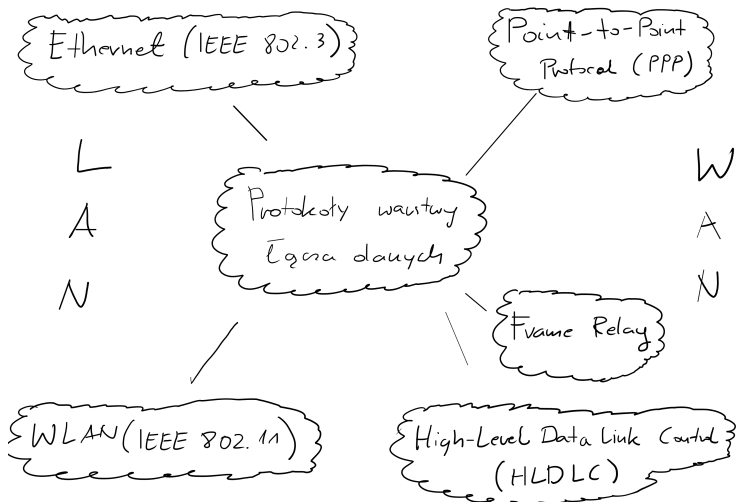 Ethernet (IEEE 802.3)
Point-to-Point
Protocol (PPP)
L
A
N
W
A
N
Protokoły warstwy
Łącza danych
Frame Relay
WLAN (IEEE 802.11)
High-Level Data Link Control
(HLDLC)